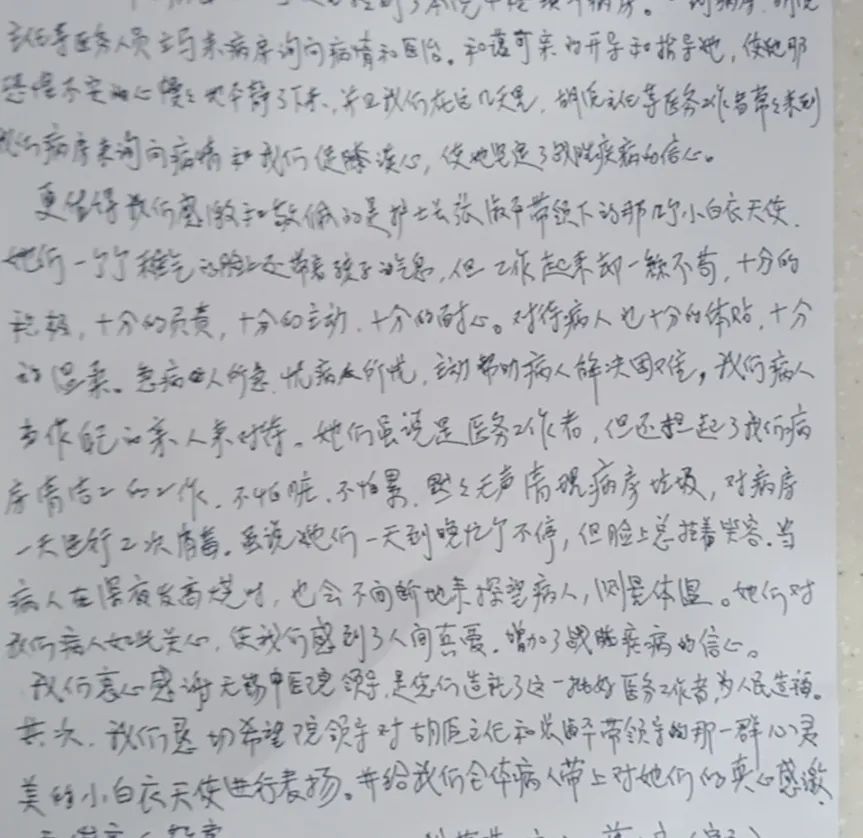 主任等医务人员主动来病房询问病情和医治。和蔼可亲的开导和指导她，使她那
恐惧不安的心慢慢地平静了下来，并且我们在这几天里，胡臣主任等医务工作者常常来到
我们病房来询问病情和我们促膝谈心，使她坚定了战胜疾病的信心。
更值得我们感激和敬佩的是护士长张淑平带领下的那几个小白衣天使，
她们一个个稚气的脸上还带着孩子的气息，但工作起来却一丝不苟，十分的
积极，十分的负责，十分的主动，十分的耐心。对待病人也十分的体贴，十分
的温柔。急病人所急，忧病人所忧，主动帮助病人解决困难，我们病人
当作自己的亲人来对待。她们虽说是医务工作者，但还担起了我们病
房清洁工的工作，不怕脏，不怕累，默默无声清理病房垃圾，对病房
一天进行二次消毒。虽说她们一天到晚忙个不停，但脸上总挂着笑容。当
病人在深夜发高烧时，也会不间断地来探望病人，测量体温。她们对
我们病人如此关心，使我们感到了人间真爱，增加了战胜疾病的信心。
我们衷心感谢无锡中医院领导，是您们造就了这一批好医务工作者，为人民造福。
其次，我们恳切希望院领导对胡臣主任和张淑平带领的那一群心灵
美的小白衣天使进行表扬。并给我们全体病人带上对她们的真心感激，